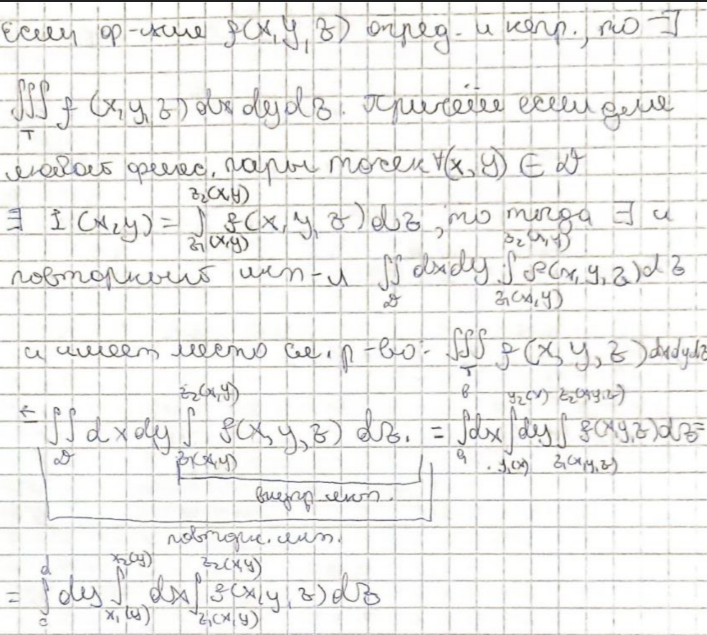 Если ф-ция f(x,y,z) опред. и непр., то ∃
∭_T f(x,y,z)dxdydz. Причём если для
любой фикс. пары точек ∀(x,y) ∈ D
∃ I(x,y) = ∫_{z₁(x,y)}^{z₂(x,y)} f(x,y,z)dz, то тогда ∃ и
повторный инт-л ∬_D dxdy ∫_{z₁(x,y)}^{z₂(x,y)} f(x,y,z)dz
и имеет место сл. р-во: ∭_T f(x,y,z)dxdydz
= ∬_D dxdy ∫_{z₁(x,y)}^{z₂(x,y)} f(x,y,z) dz. = ∫_a^b dx ∫_{y₁(x)}^{y₂(x)} dy ∫_{z₁(x,y,z)}^{z₂(x,y,z)} f(x,y,z)dz =
внутр. инт.
повторн. инт.
= ∫_c^d dy ∫_{x₁(y)}^{x₂(y)} dx ∫_{z₁(x,y)}^{z₂(x,y)} f(x,y,z)dz